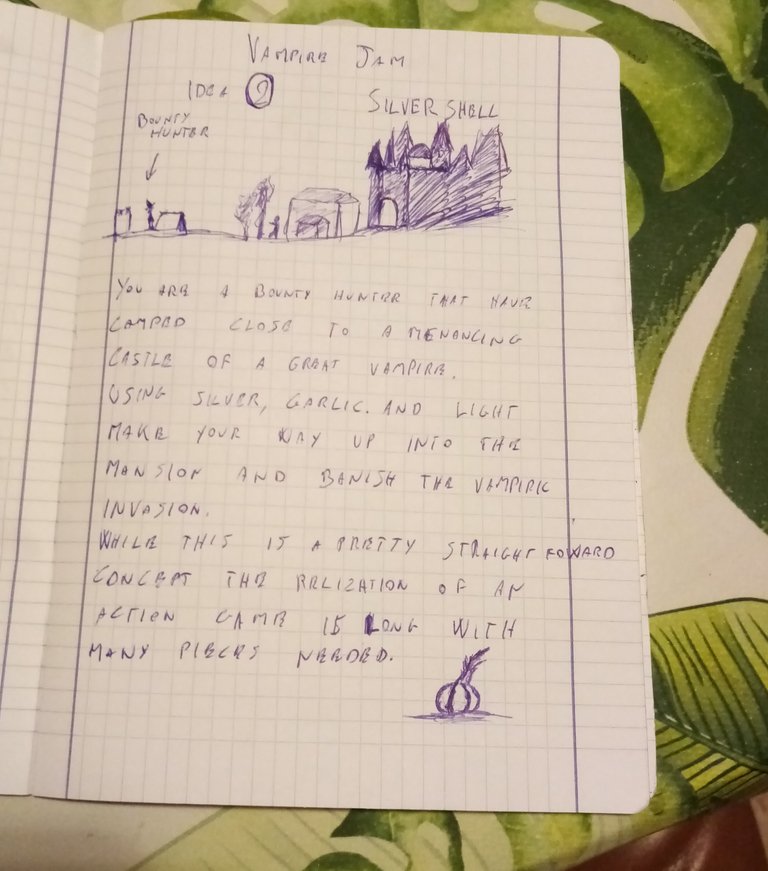 VAMPIRE JAM
IDEA 2
SILVER SHELL
BOUNTY
HUNTER
YOU ARE A BOUNTY HUNTER THAT HAVE
CAMPED CLOSE TO A MENANCING
CASTLE OF A GREAT VAMPIRE.
USING SILVER, GARLIC. AND LIGHT
MAKE YOUR WAY UP INTO THE
MANSION AND BANISH THE VAMPIRIC
INVASION.
WHILE THIS IS A PRETTY STRAIGHT FOWARD
CONCEPT THE RELIZATION OF AN
ACTION GAME IS LONG WITH
MANY PIECES NEEDED.